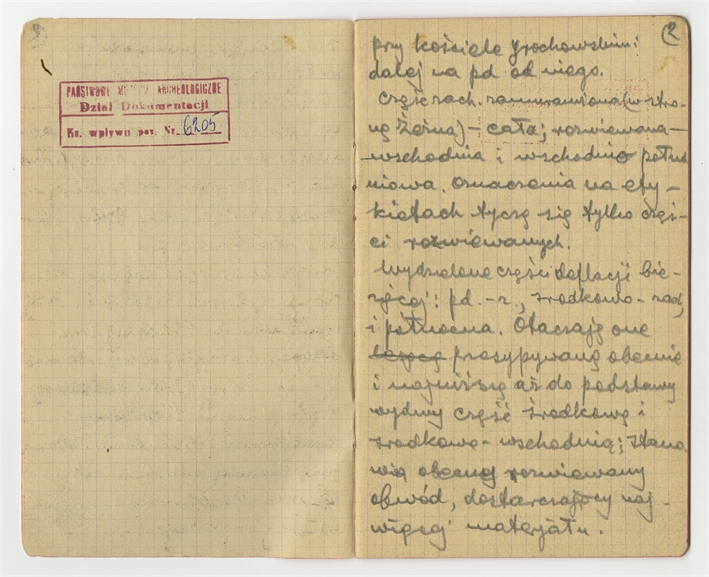 PAŃSTWOWE MUZEUM ARCHEOLOGICZNE
Dział Dokumentacji
Ks. wpływu poz. Nr. 6205
2
przy kościele grochowskim i
dalej na pd od niego.
Część zach. zamurawiona (w stro-
nę Żerna) – cała; rozwiewana –
wschodnia i wschodnio połud
niowa. Oznaczenia na ety-
kietach tyczą się tylko częś-
ci rozwiewanych.
Wydzielone części deflacji bie-
żącej: pd.-z., środkowo-zach,
i północna. Otaczają one
przesypywaną obecnie
i aż do podstawy
wydmy część środkową i
środkowo-wschodnią; stano
wią obecny rozwiewany
obwód, dostarczający naj-
więcej materjału.